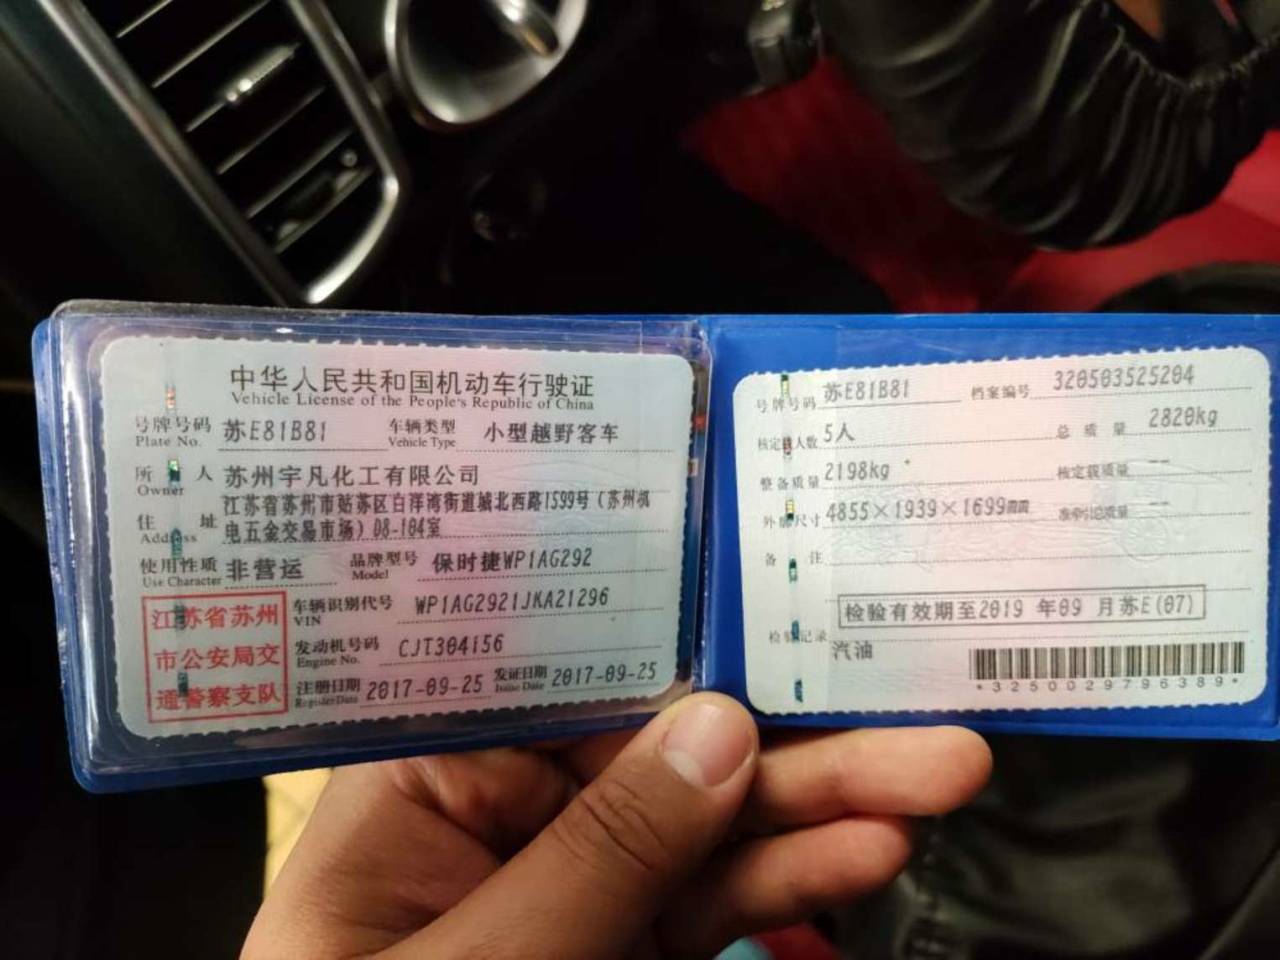 中华人民共和国机动车行驶证
Vehicle License of the People's Republic of China
号牌号码 苏E81B81 车辆类型 小型越野客车
Plate No. Vehicle Type
所 人 苏州宇凡化工有限公司
Owner
住 址 江苏省苏州市姑苏区白洋湾街道城北西路1599号(苏州机
Address 电五金交易市场)D8-104室
使用性质 非营运 品牌型号 保时捷WP1AG292
Use Character Model
江苏省苏州
市公安局交
通警察支队
车辆识别代号 WP1AG2921JKA21296
VIN
发动机号码 CJT304156
Engine No.
注册日期 2017-09-25 发证日期 2017-09-25
Register Date Issue Date
号牌号码 苏E81B81 档案编号 320503525204
核定载人数 5人 总 质 量 2820kg
整备质量 2198kg 核定载质量 --
外廓尺寸 4855×1939×1699 准牵引总质量 --
备 注
检验有效期至2019 年09 月苏E(07)
检验记录
汽油
*3250029796389*